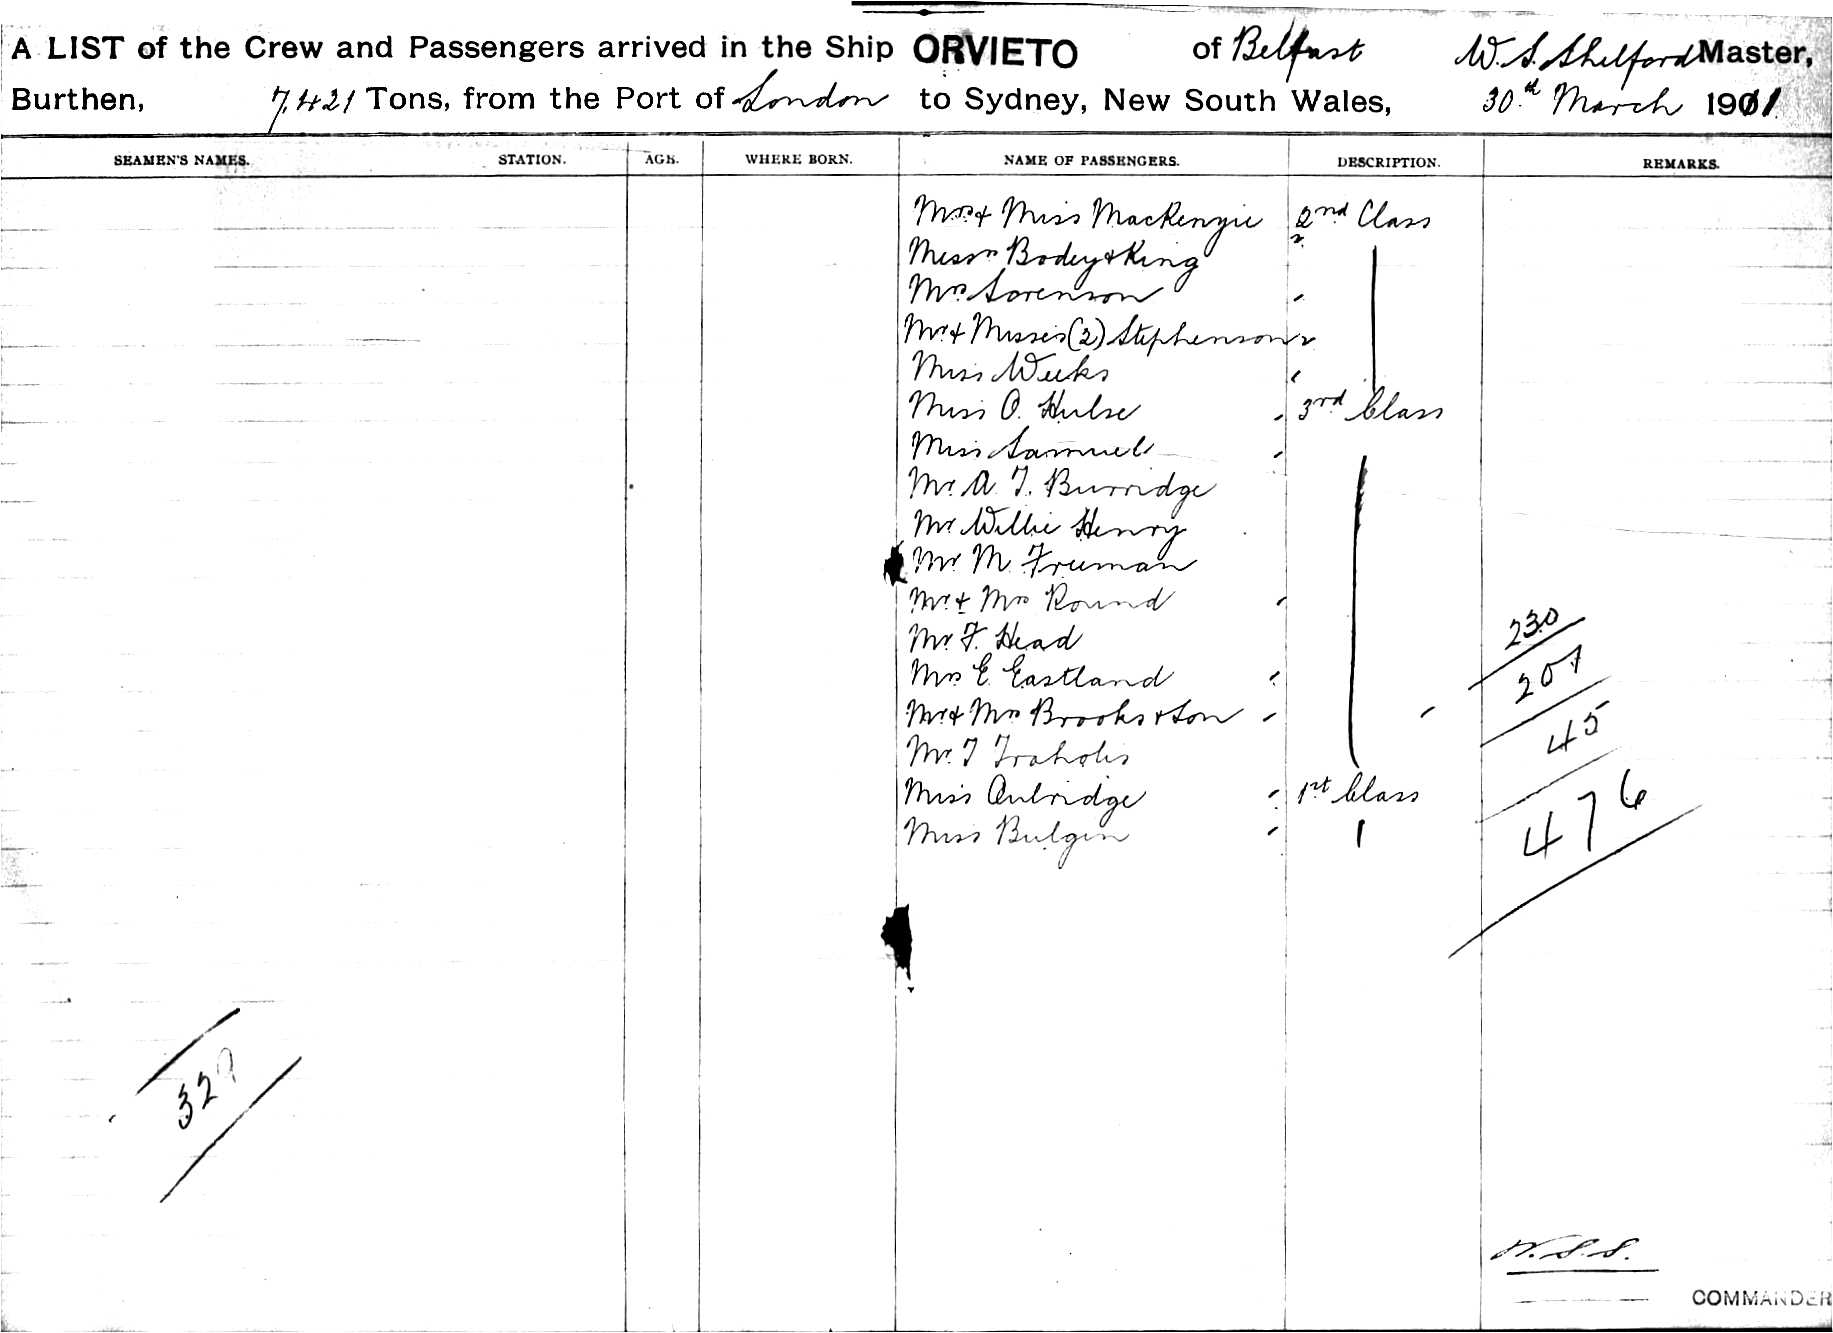 A LIST of the Crew and Passengers arrived in the Ship ORVIETO of Belfast W. S. Shelford Master,
Burthen, 7,421 Tons, from the Port of London to Sydney, New South Wales, 30th March 1911
SEAMEN'S NAMES. STATION. AGE. WHERE BORN. NAME OF PASSENGERS. DESCRIPTION. REMARKS.
Mrs & Miss MacKenzie 2nd Class
Messrs Bodey & King
Mrs Sorenson
Mr & Misses (2) Stephenson
Miss Weeks
Miss O. Hulse 3rd Class
Miss Samuel
Mr A. T. Burridge
Mr Willie Henry
Mr M. Freeman
Mr & Mrs Round
Mr F. Head
230
Mrs E. Eastland
207
Mr & Mrs Brooks & Son
45
Mr T
Miss 1st Class
476
Miss Bulgin
32
W.S.S.
COMMANDER